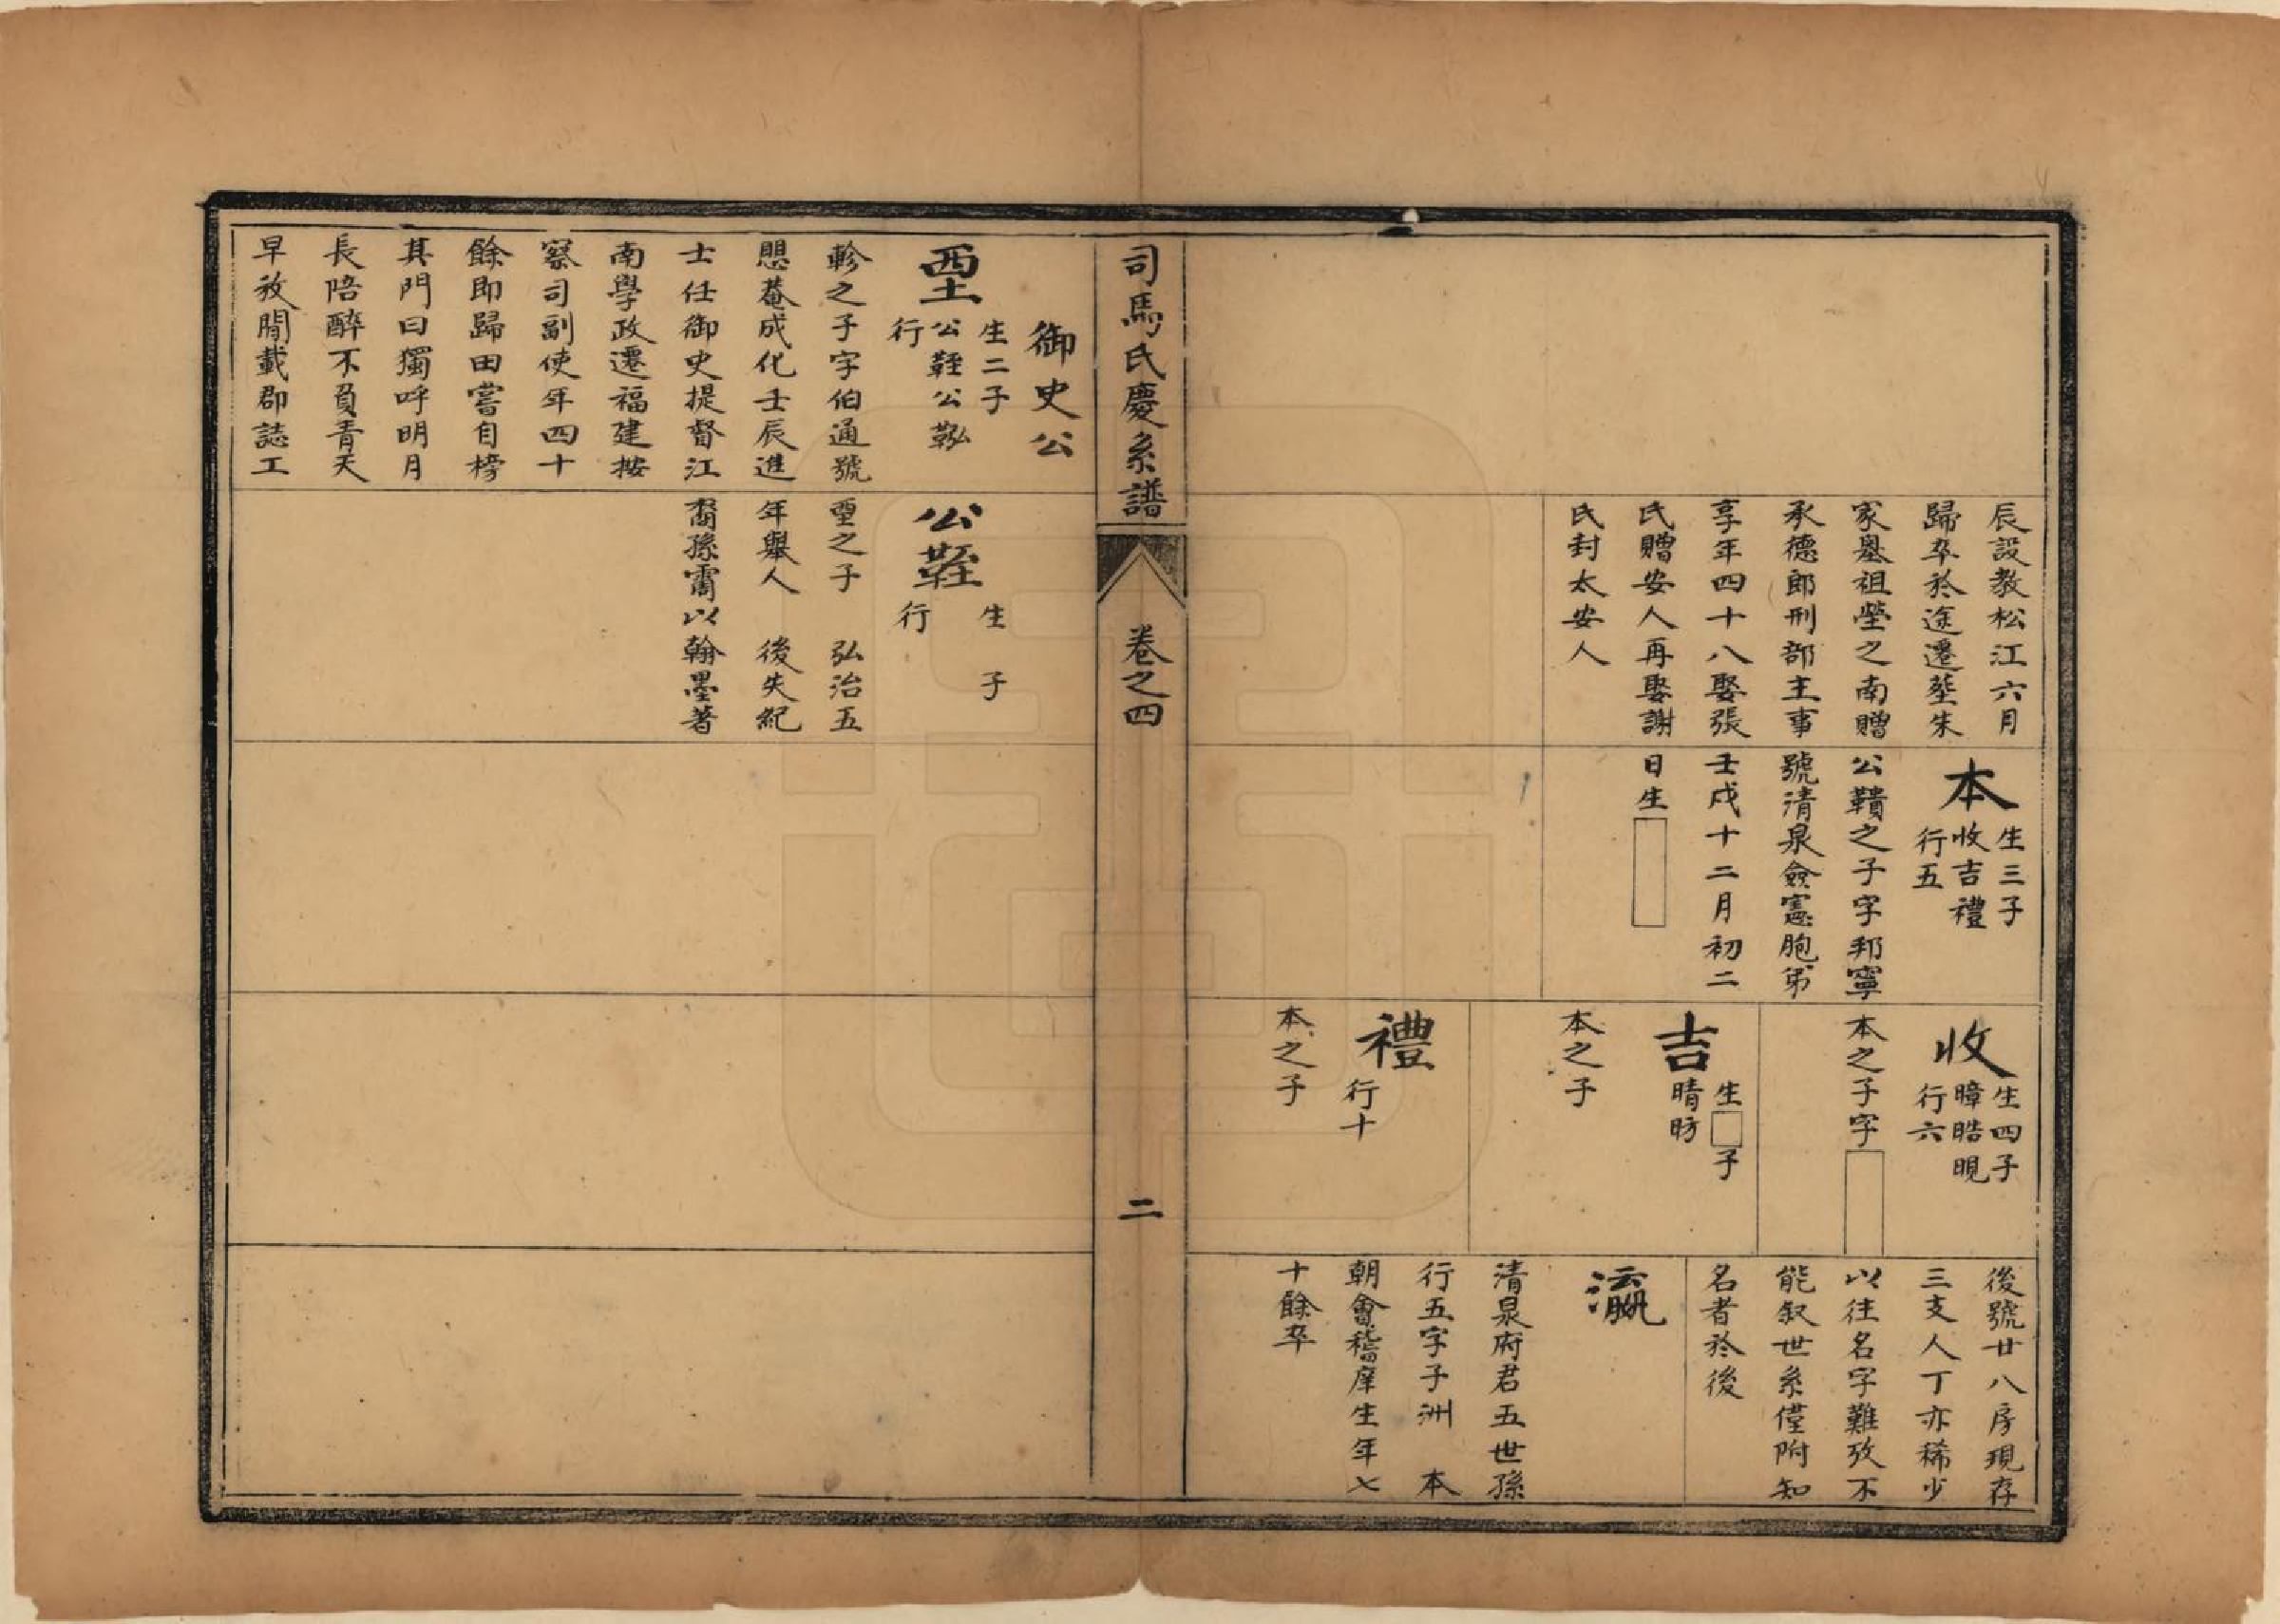 辰設教松江六月
歸卒於途遷塟朱
家嶴祖塋之南贈
承德郎刑部主事
享年四十八娶張
氏贈安人再娶謝
氏封太安人
本
生三子
收吉禮
行五
公鞼之子字邦寧
號清泉僉憲胞弟
壬戌十二月初二
日生
收
生四子
暲晧晛
行六
本之子字
吉
生□子
晴昉
本之子
禮
行十
本之子
後號廿八房現存
三支人丁亦稀少
以往名字難攷不
能叙世系僅附知
名者於後
瀛
清泉府君五世孫
行五字子洲 本
朝會稽庠生年七
十餘卒
司馬氏慶系譜
卷之四
二
御史公
垔
生二子
公鞋公鞃
行
軫之子字伯通號
愳菴成化壬辰進
士任御史提督江
南學政遷福建按
察司副使年四十
餘即歸田嘗自榜
其門曰獨呼明月
長陪醉不負青天
早放閒載郡誌工
公鞋
生 子
行
垔之子 弘治五
年舉人 後失紀
裔孫霱以翰墨著